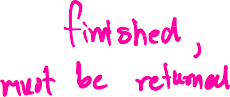 finished,
must be returned